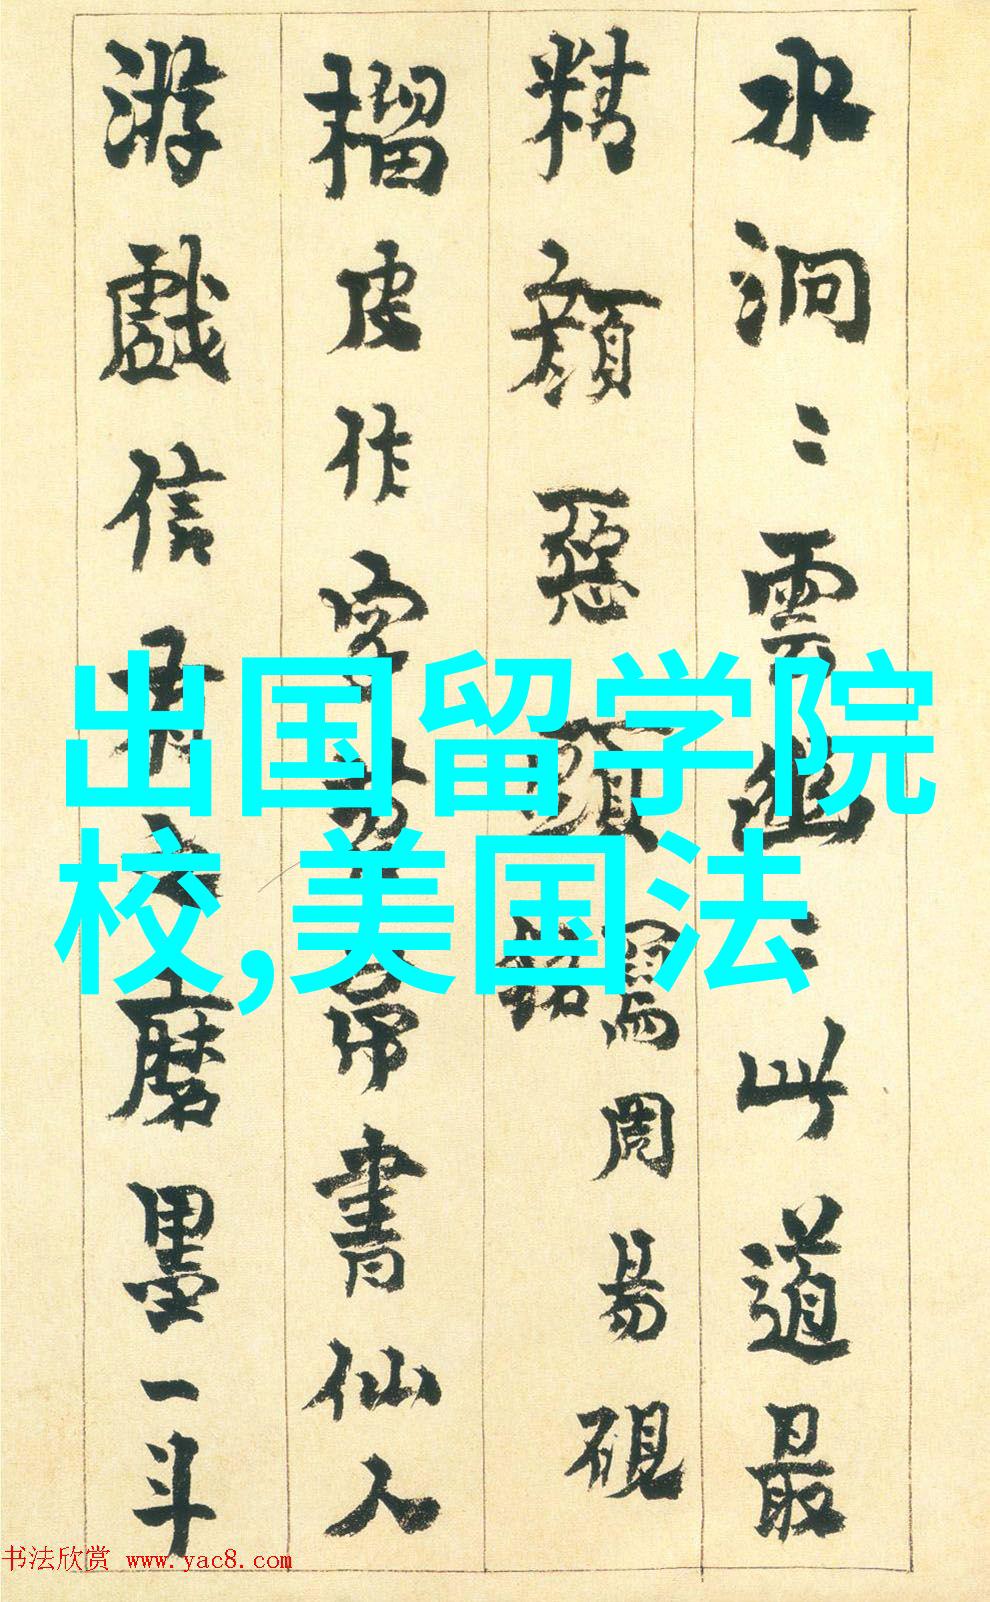 水洞〻雲幽〻此道最
精顏惡頭
銘
寫周易硯
榴皮作字
書仙人
游戲信
磨墨一斗
出国留学院
校,美国法
书法欣赏 www.yac8.com